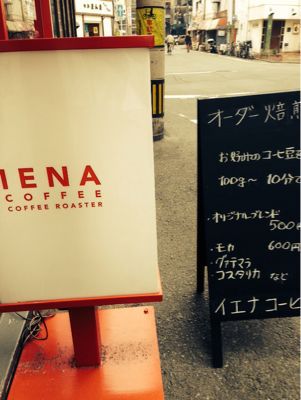 IENA
COFFEE
COFFEE ROASTER
オーダー焙煎
お好みのコーヒ豆を
100g〜 10分で
・オリジナルブレンド
500円
・モカ 600円
・グァテマラ
コスタリカ など
イエナコーヒ